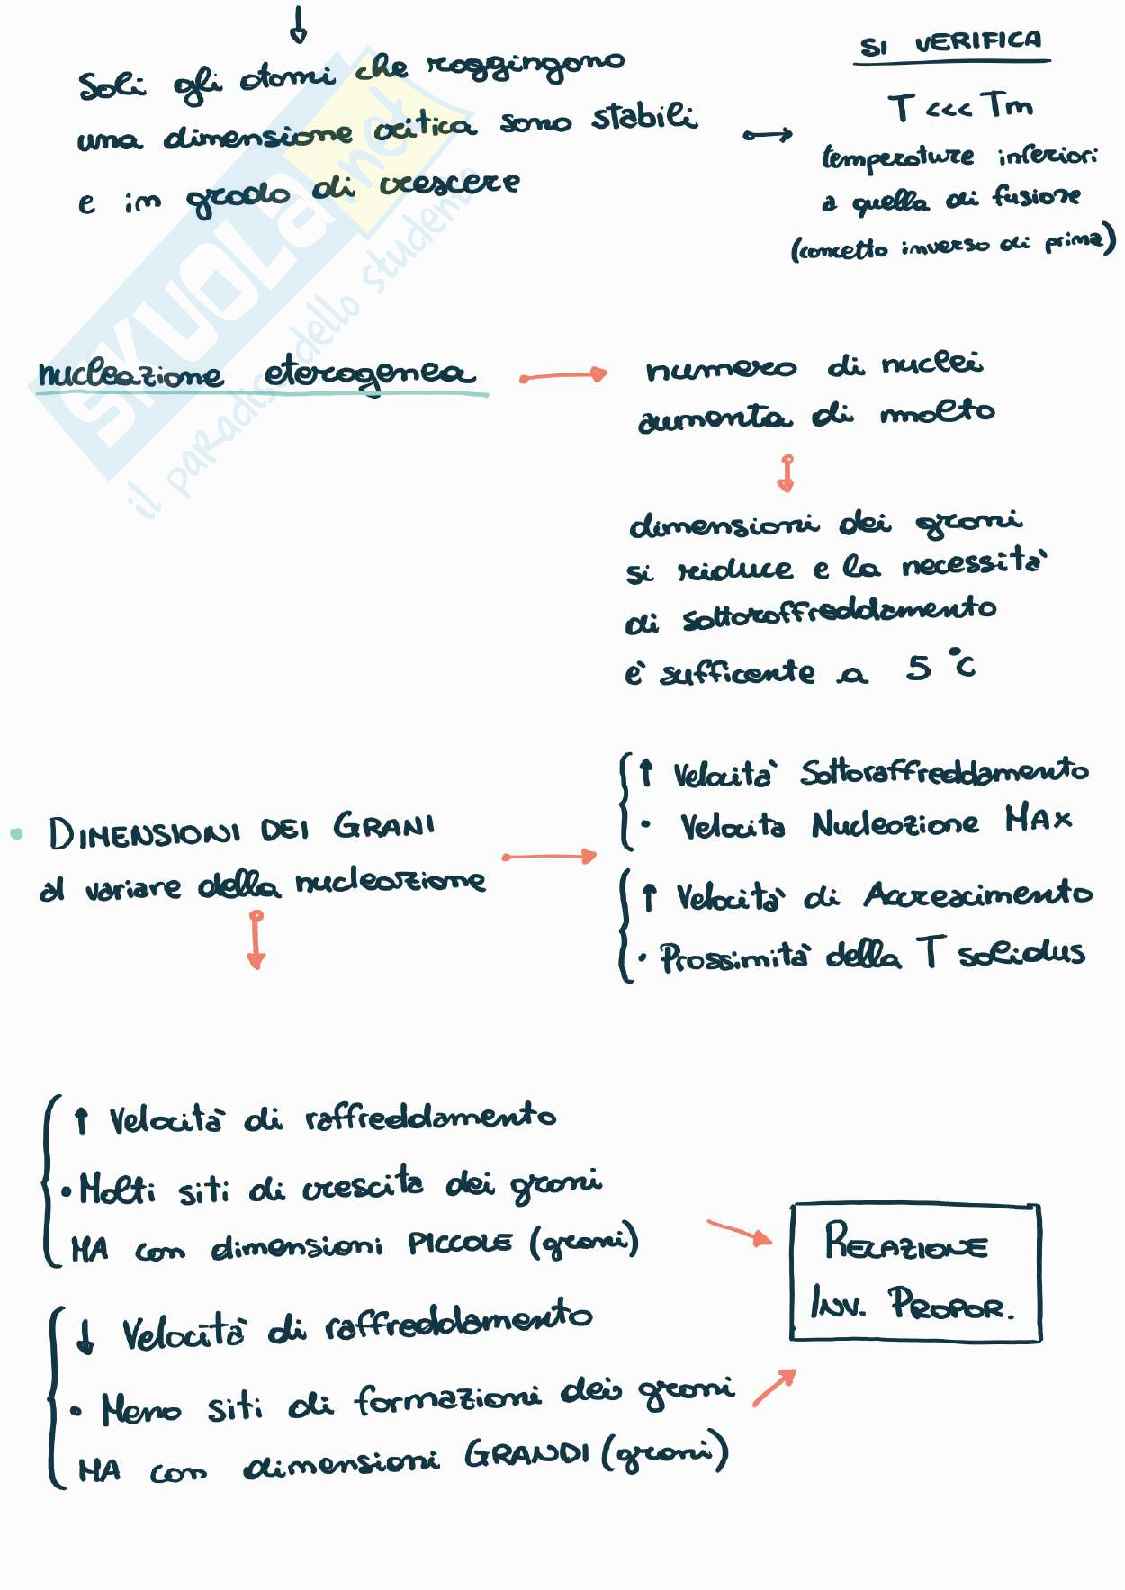 Soli gli atomi che raggingono
una dimensione critica sono stabili
e in grado di crescere
SI VERIFICA
T <<< Tm
temperature inferiori
a quella di fusione
(concetto inverso di prima)
SKUOLA.net
il paradiso dello studente
nucleazione eterogenea
numero di nuclei
aumenta di molto
dimensioni dei grani
si riduce e la necessità
di sottoraffreddamento
è sufficente a 5 °C
• DIMENSIONI DEI GRANI
al variare della nucleazione
↑ Velocità Sottoraffreddamento
• Velocita Nucleazione MAX
↑ Velocità di Accrescimento
• Prossimità della T solidus
↑ Velocità di raffreddamento
• Molti siti di crescita dei grani
MA con dimensioni PICCOLE (grani)
↓ Velocità di raffreddamento
• Meno siti di formazioni dei grani
MA con dimensioni GRANDI (grani)
RELAZIONE
INV. PROPOR.